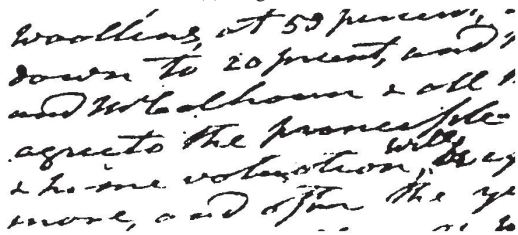 woollens, at 50 percent,
down to 20 prcent, and
and Mr Calhoun & all
agree to the principle
& home valuation, will
more, and after the ye